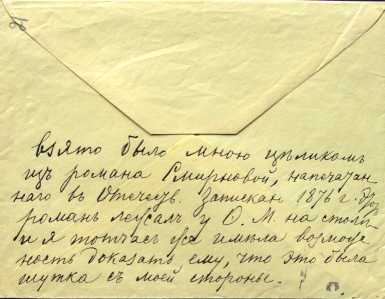 взято было мною цѣликомъ
изъ романа Смирновой, напечатан-
наго въ Отечеств. Запискахъ 1876 г. Этотъ
романъ лежалъ у Ѳ. М. на столѣ
и я тотчасъ же имѣла возмож-
ность доказать ему, что это была
шутка съ моей стороны.